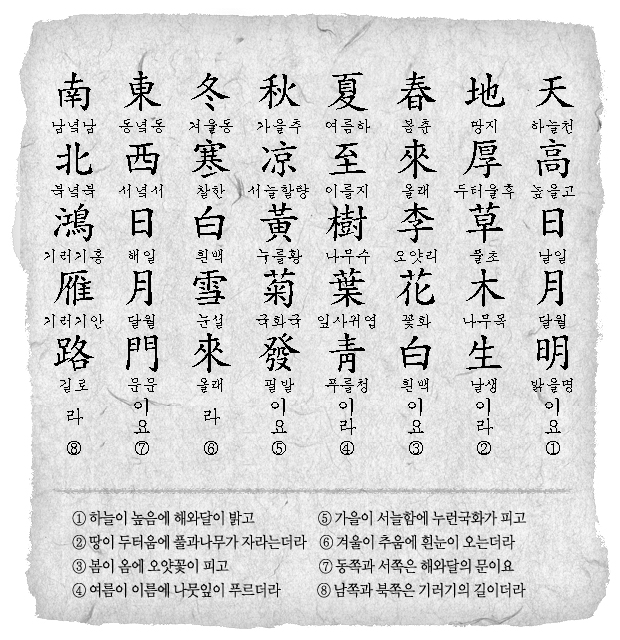 天 하늘천 高 높을고 日 날일 月 달월 明 밝을명 이요 ①
地 땅지 厚 두터울후 草 풀초 木 나무목 生 날생 이라 ②
春 봄춘 來 올래 李 오얏리 花 꽃화 白 흰백 이요 ③
夏 여름하 至 이를지 樹 나무수 葉 잎사귀엽 靑 푸를청 이라 ④
秋 가을추 凉 서늘할량 黃 누를황 菊 국화국 發 필발 이요 ⑤
冬 겨울동 寒 찰한 白 흰백 雪 눈설 來 올래 라 ⑥
東 동녘동 西 서녘서 日 해일 月 달월 門 문문 이요 ⑦
南 남녘남 北 북녘북 鴻 기러기홍 雁 기러기안 路 길로 라 ⑧
① 하늘이 높음에 해와달이 밝고
② 땅이 두터움에 풀과나무가 자라는더라
③ 봄이 옴에 오얏꽃이 피고
④ 여름이 이름에 나뭇잎이 푸르더라
⑤ 가을이 서늘함에 누런국화가 피고
⑥ 겨울이 추움에 흰눈이 오는더라
⑦ 동쪽과 서쪽은 해와달의 문이요
⑧ 남쪽과 북쪽은 기러기의 길이더라